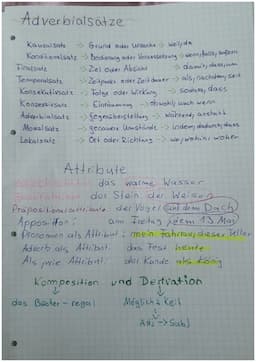 Adverbialsätze
Kausalsatz → Grund oder Ursache → weil, da
Konditionalsatz → Bedingung oder Voraussetzung → wenn, falls, sofern
Finalsatz → Ziel oder Absicht → damit, dass, um
Temporalsatz → Zeitpunkt oder Zeitdauer → als, nachdem, seit
Konsekutivsatz → Folge oder Wirkung → sodass, dass
Konzessivsatz → Einräumung → obwohl, auch wenn
Adverbialsatz → Gegenüberstellung → während, anstatt
Modalsatz → genauen Umstände → indem, dadurch, dass
Lokalsatz → Ort oder Richtung → wo, wohin, woher
Attribute
das warme Wasser
der Stein der Weisen
Präpositionalattribute: der Vogel auf dem Dach
Apposition: am Freitag, dem 13. Mai
Pronomen als Attribut: mein Fahrrad, dieser Teller
Adverb als Attribut: das Fest heute
Als/wie Attribut: der Kunde als König
Komposition und Derivation
das Bücher-regal
Möglich & Keit
Adj → Subj